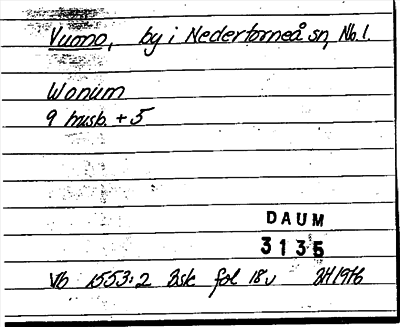 Vuono, by i Nedertorneå sn, Nb.
Wonum
9 husb. + 5
DAUM
3135
Vb 1553:2 Bsk fol 18v